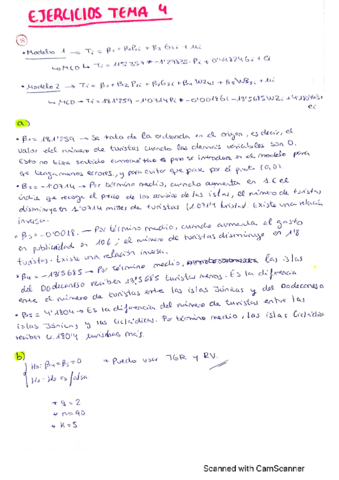 EJERCICIOS TEMA 4
8
• Modelo 1 → Ti = β1 + β2Pi + β3Gi + ui
• Modelo 2 → Ti = β1 + β2 Pi + β3Gi + β4 W2i + β5W3i + ui
ei
a)
• β1 = → Se trata de la ordenada en el origen, es decir, el
valor del número de turistas cuando las demás variables son 0.
Esto no tiene sentido pero se introduce en el modelo para
que tengamos errores, y para evitar que pase por el punto (0,0)
• β2 = -1'0714 → Por término medio, cuando aumenta en 1€ el
índice que recoge el precio de los servicios de las islas, el número de turistas
disminuye en 1'0714 miles de turistas. Existe una relación
inversa.
• β3 = -0'0018 → Por término medio, cuando aumenta el gasto
en publicidad en 10€, el número de turistas disminuye en 1'8
turistas. Existe una relación inversa.
• β4 = -19'5685 → Por término medio, las islas
del Dodecaneso reciben 19'5685 turistas menos. Es la diferencia
entre el número de turistas entre las islas Jónicas y del Dodecaneso
• β5 = 4'1804 → Es la diferencia del número de turistas entre las
islas Jónicas y las Cícladicas. Por término medio, las islas Cícladicas
reciben 4'1804 turistas más.
b)
H0: β4 = β5 = 0 * Puedo usar TGR y RV.
H1: H0 es falsa
* q = 2
* n = 40
* k = 5
Scanned with CamScanner